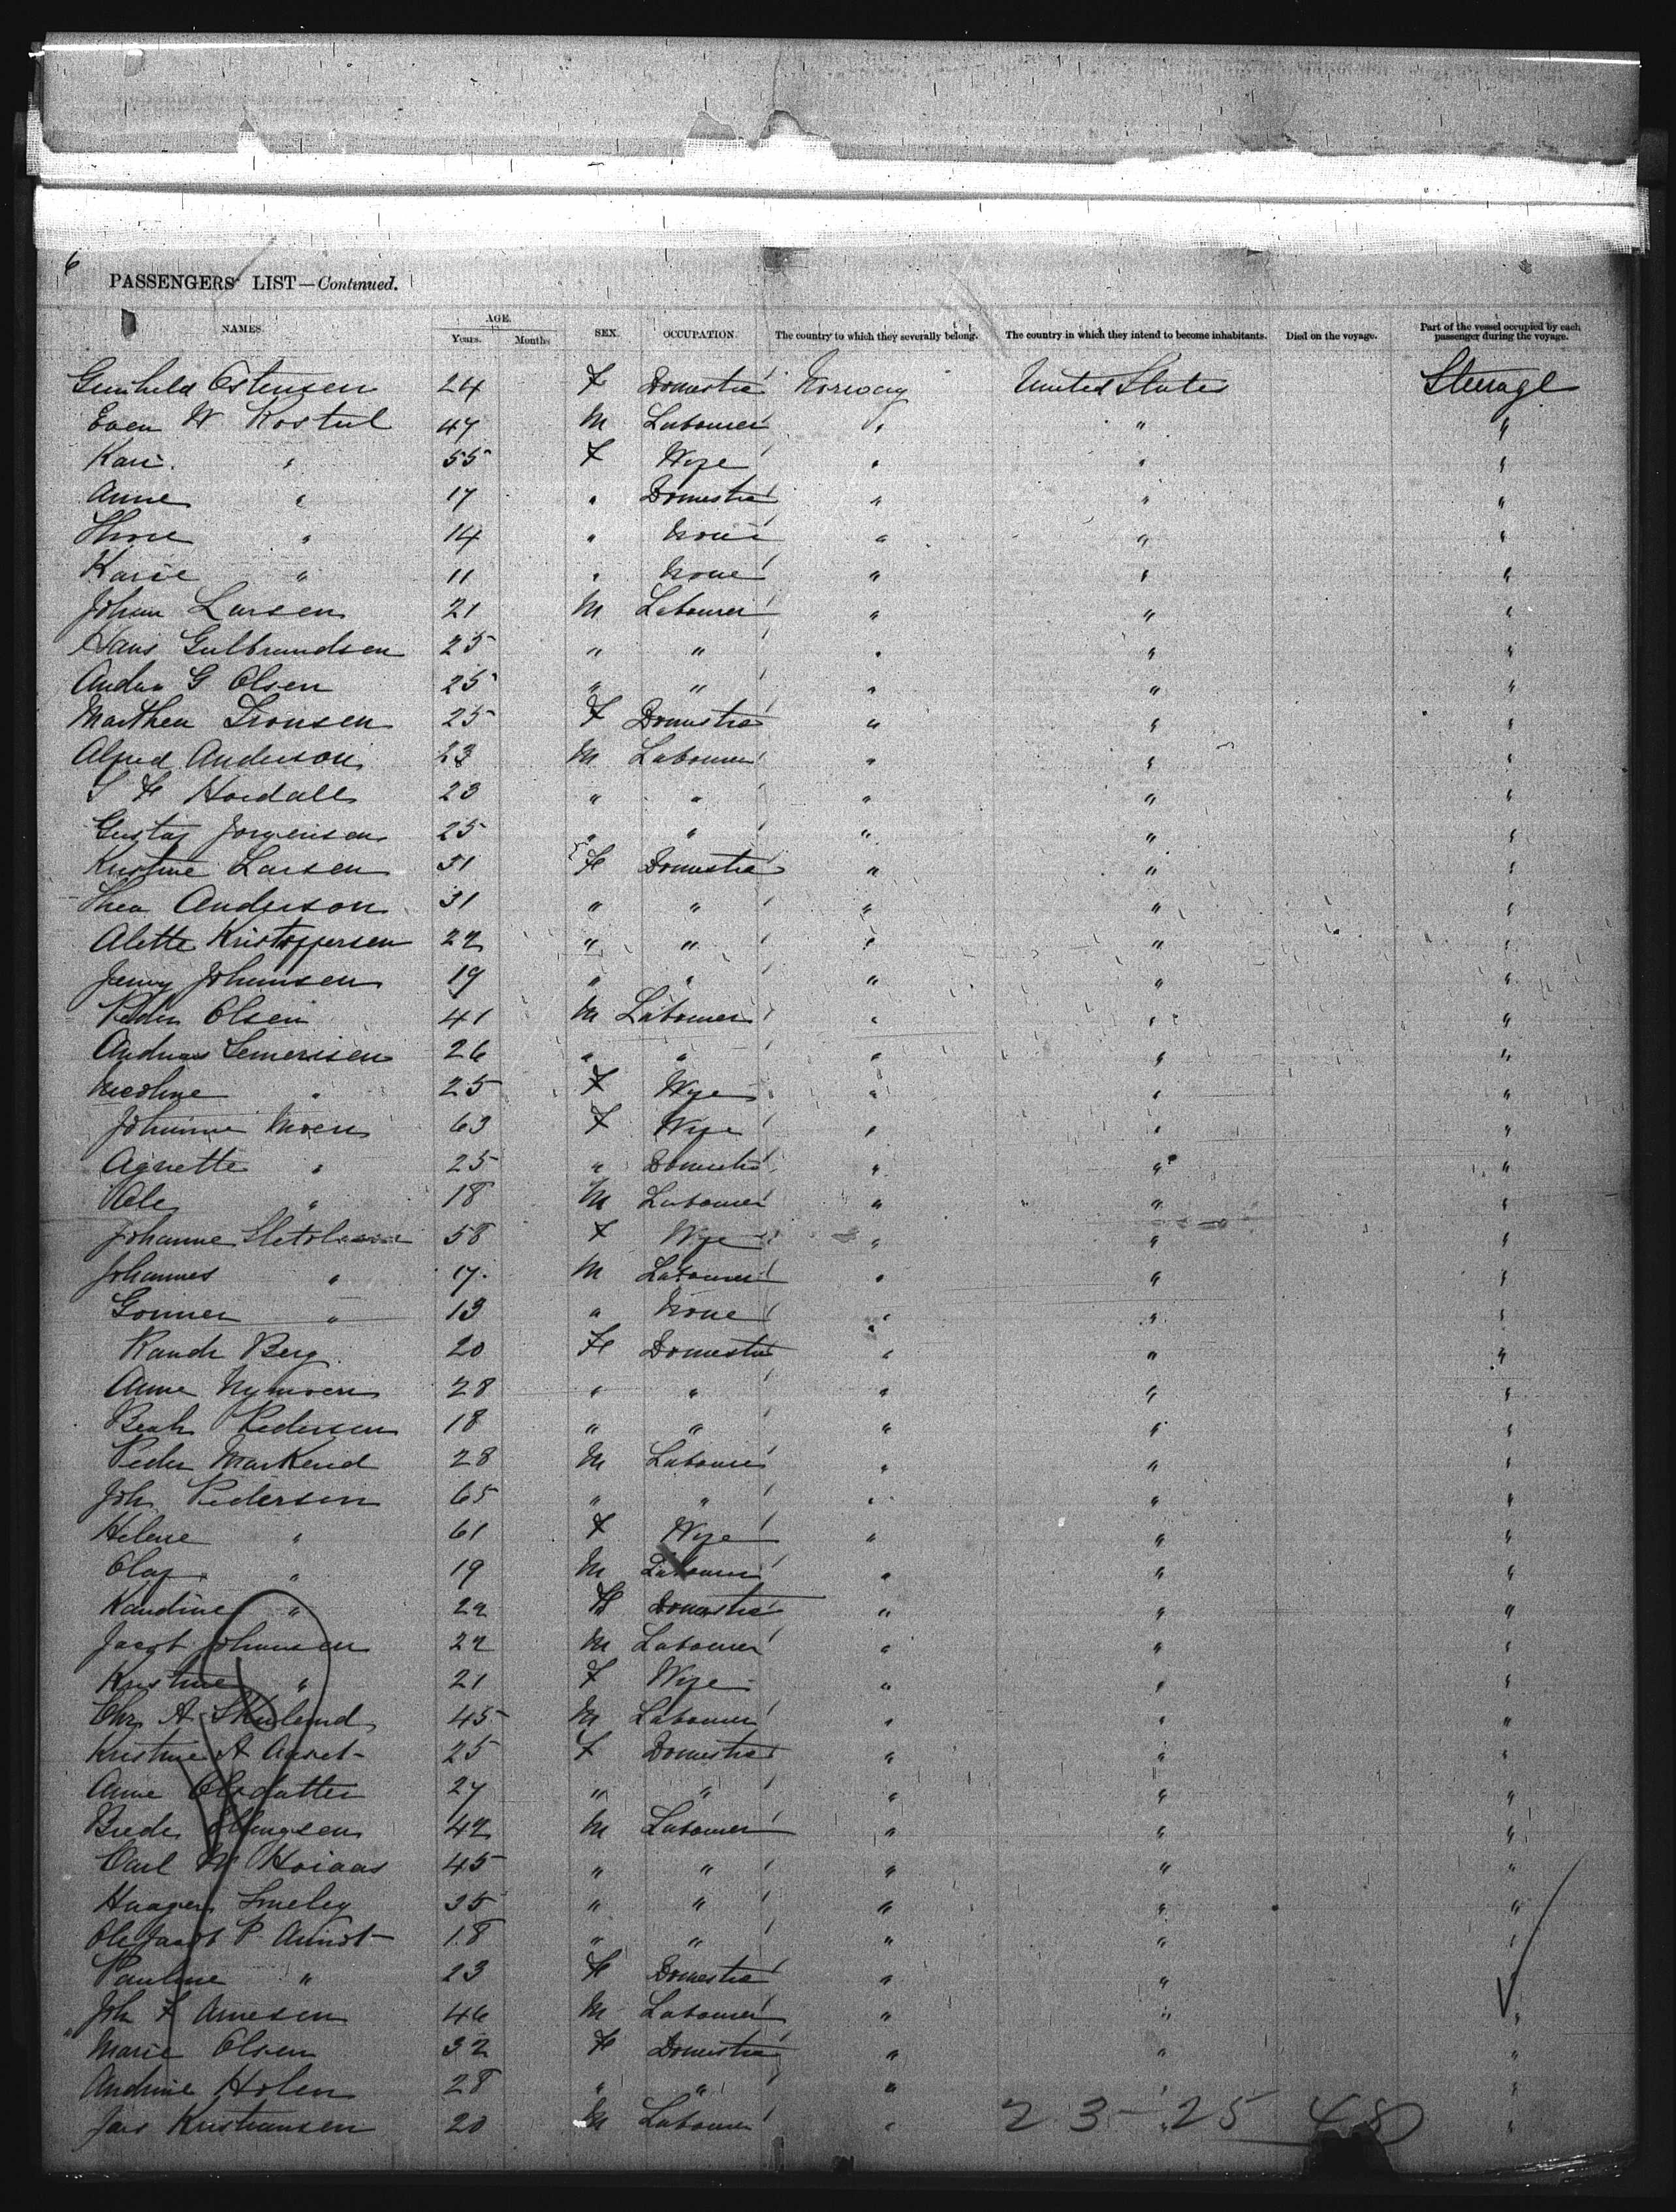 6
PASSENGERS' LIST—Continued.
NAMES. AGE. Years. Months SEX. OCCUPATION. The country to which they severally belong. The country in which they intend to become inhabitants. Died on the voyage. Part of the vessel occupied by each passenger during the voyage.
Gunhild Ostensen 24 F Domestic Norway United States Steerage
Even N Rostul 47 M Labourer " " "
Kari " 55 F Wife " " "
Anne " 17 " Domestic " " "
Thone " 14 " None " " "
Karie " 11 " None " " "
Johan Larsen 21 M Labourer " " "
Hans Gulbrandsen 25 " " " " "
G Olsen 25 " " " " "
Marthea Tronsen 25 F Domestic " " "
Alfred Anderson 23 M Labourer " " "
23 " " " " "
Gustaf Jorgensen 25 " " " " "
Kristine Larsen 31 F Domestic " " "
Thea Anderson 31 " " " " "
Alette Kristoffersen 22 " " " " "
Jenny Johannsen 19 " " " " "
Peder Olsen 41 M Labourer " " "
Andreas 26 " " " " "
Nicoline " 25 F Wife " " "
Johanne Moen 63 F Wife " " "
Agnette " 25 " Domestic " " "
Ole " 18 M Labourer " " "
Johanne 58 F Wife " " "
Johannes " 17 M Labourer " " "
Gonner " 13 " None " " "
Randi Berg 20 F Domestic " " "
Anne Nymoen 28 " " " " "
Pedersen 18 " " " " "
Peder Markerid 28 M Labourer " " "
Joh Pedersen 65 " " " " "
Helene " 61 F Wife " " "
Olaf " 19 M Labourer " " "
Kandine " 22 F Domestic " " "
Jacob Johansen 22 M Labourer " " "
Kristine " 21 F Wife " " "
Chr A Skulend 45 M Labourer " " "
Kristine A 25 F Domestic " " "
Anne Olsdatter 27 " " " " "
Brede Ellingsen 42 M Labourer " " "
Carl M Hoiaas 45 " " " " "
Haagen Smeby 35 " " " " "
Ole Jacob P. 18 " " " " "
Pauline " 23 F Domestic " " "
Joh F Arnesen 46 M Labourer " " "
Marie Olsen 32 F Domestic " " "
Andrine Holen 28 " " " " "
Kristiansen 20 M Labourer " " "
23-25 48